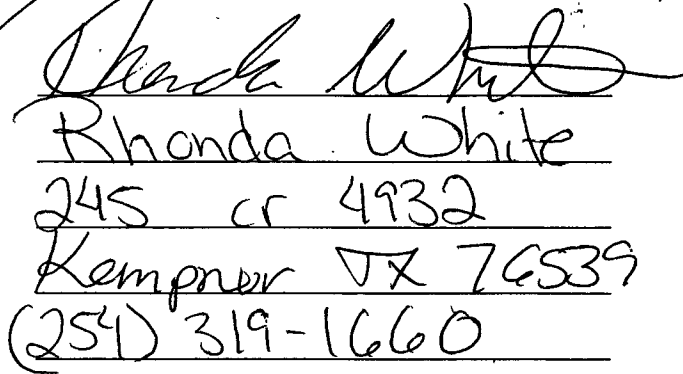 Rhonda White
Rhonda White
245 cr 4932
Kempner TX 76539
(254) 319-1660